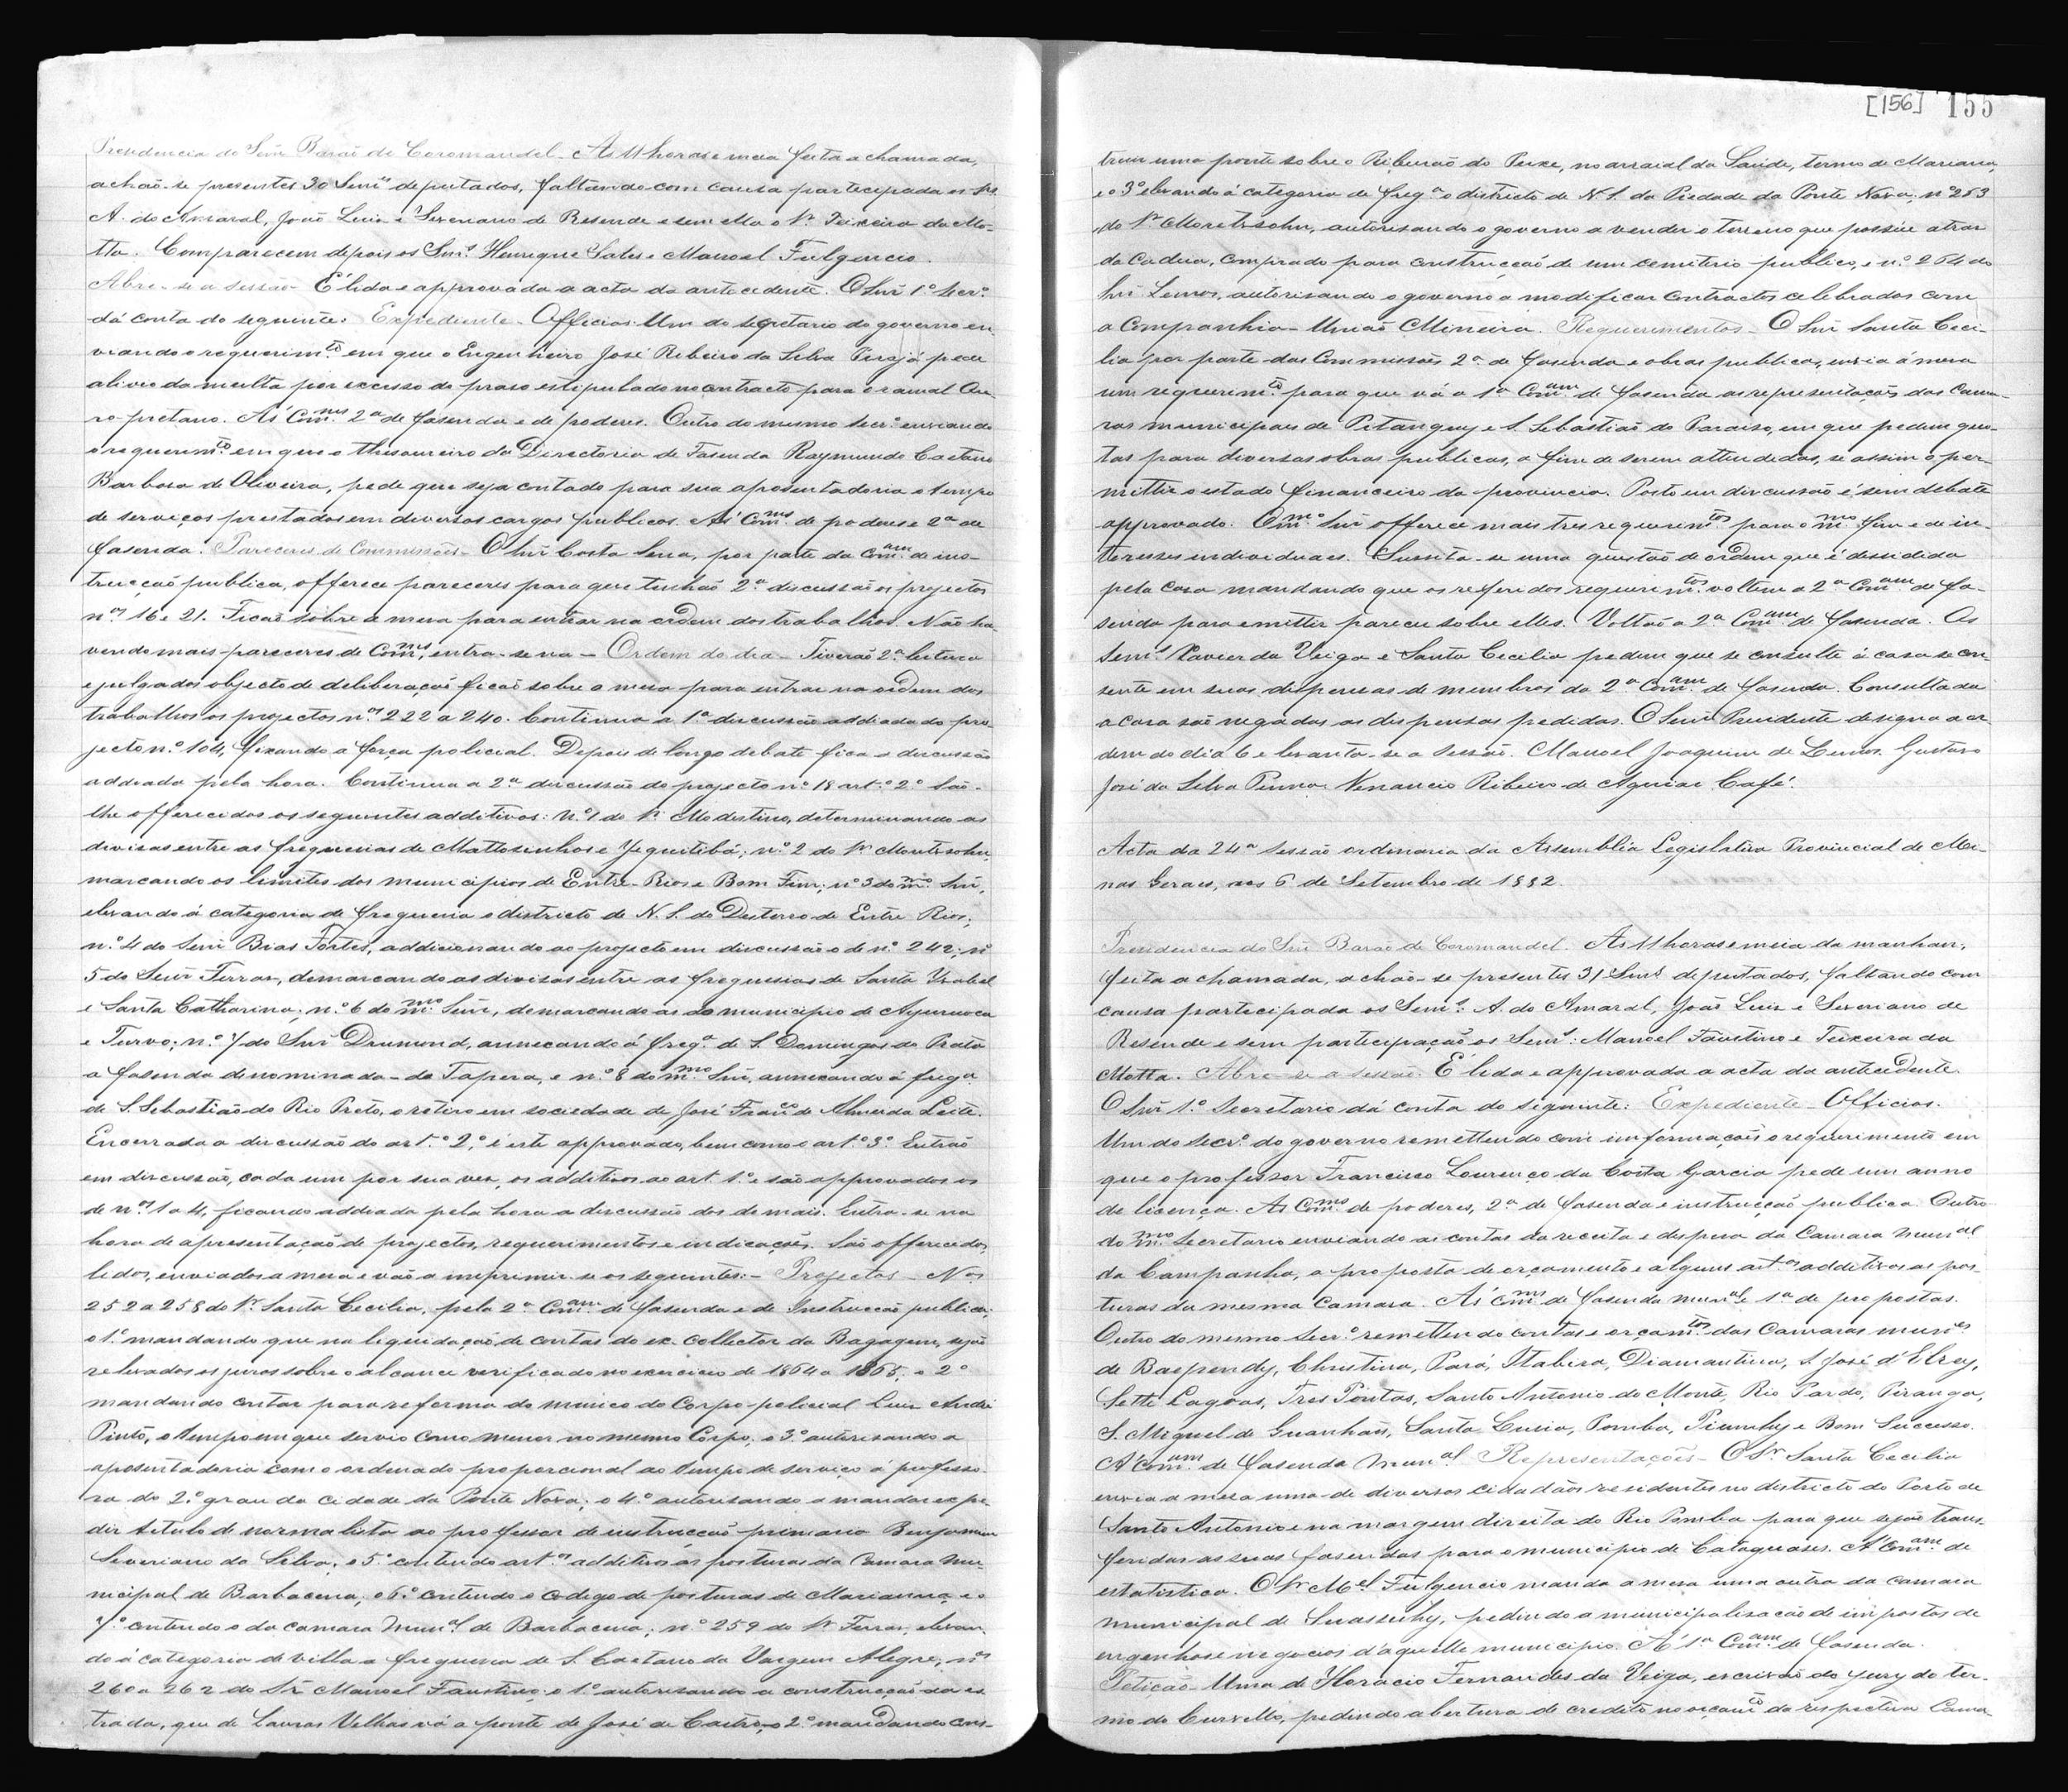 Presidencia do Snr̃ Barão de Coromandel. As 11 horas e meia feita a chamada,
achão-se presentes 30 Senrs̃ deputados, faltando com causa participada os Srs
A. do Amaral, João Luiz e Severiano de Resende e sem ella o Sr Teixeira da Mo-
tta. Comparecem depois os Snrs. Henrique Sales e Manoel Fulgencio.
Abre-se a sessão. É lida e approvada a acta da antecedente. O Snr̃ 1º Secrº
dá conta do seguinte: Expediente. Officios: Um do segretario do governo en-
viando o requerimto em que o Engenheiro José Ribeiro da Silva Pirajá pede
alivio da multa por excesso do praso estipulado no contracto para o ramal Ou-
ro-pretano. Ás Comms 2ª de fasenda e de poderes. Outro do mesmo Secrº enviando
o requerimto em que o thesoureiro da Directoria de Fasenda Raymundo Caetano
Barbosa de Oliveira, pede que seja contado para sua aposentadoria o tempo
de serviços prestados em diversos cargos publicos. Ás Comms de poderes e 2ª de
fasenda. Pareceres de Commissões. O Snr̃ Costa Sena, por parte da Comam de ins-
trucção publica, offerece pareceres para que tenhão 2ª discussão os projectos
nos 16 e 21. Ficão sobre a mesa para entrar na ordem dos trabalhos. Não ha-
vendo mais pareceres de Comms, entra-se na - Ordem do dia - Tiverão 2ª leitura
e julgados objecto de deliberação ficão sobre a mesa para entrar na ordem dos
trabalhos os projectos nos 222 a 240. Continua a 1ª discussão addiada do pro-
jecto nº 104, fixando a força policial. Depois de longo debate fica a discussão
addiada pela hora. Continua a 2ª discussão do projecto nº 18 artº 2º São-
lhe offerecidos os seguintes additivos: Nº 1 do Sr Modestino, determinando as
divisas entre as freguesias de Mattosinhos e Jequitibá; nº 2 do Sr Moretzsohn,
marcando os limites dos municipios de Entre-Rios e Bom Fim; nº 3 do mmo Snr̃,
elevando á categoria de freguesia o districto de N. S. do Desterro de Entre Rios;
nº 4 do Senr̃ Bias Fortes, addicionando ao projecto em discussão o de nº 242; nº
5 do Senr̃ Ferraz, demarcando as divisas entre as freguesias de Santa Isabel
e Santa Catharina; nº 6 do mmo Senr̃, demarcando as do municipio de Ayuruoca
e Turvo; nº 7 do Snr̃ Drumond, annexando á fregª de S. Domingos do Prata
a fasenda denominada - da Tapera, e nº 8 do mmo Snr̃, annexando á fregª
de S. Sebastião do Rio Preto, o retiro em sociedade de José Franco de Almeida Leite.
Encerrada a discussão do artº 2º, é este approvado, bem como o artº 3º. Entrão
em discussão, cada um por sua vez, os additivos ao art 1º e são approvados os
de nos 1 a 4, ficando addiada pela hora a discussão dos demais. Entra-se na
hora de apresentação de projectos, requerimentos e indicações. São offerecidos,
lidos, enviados a mesa e vão a imprimir-se os seguintes: - Projectos - Nos
252 a 258 do Sr Santa Cecilia, pela 2ª Comam de fasenda e de Instrucção publica;
o 1º mandando que na liquidação de contas do ex-collector da Bagagem, sejão
relevados os juros sobre o alcance verificado no exercicio de 1864 a 1865; o 2º
mandando contar para reforma do musico do Corpo policial Luiz André
Pinto, o tempo em que servio como menor no mesmo Corpo; o 3º autorisando a
aposentadoria com o ordenado proporcional ao tempo de serviço á professo-
ra do 2º grau da cidade da Ponte Nova; o 4º autorisando a mandar expe-
dir titulo de normalista ao professor de instrucção primaria Benjamim
Severiano da Silva; o 5º contendo artos additivos ás posturas da Camara Mu-
nicipal de Barbacena; o 6º contendo o codigo de posturas de Marianna, e o
7º contendo o da camara Munal de Barbacena; nº 259 do Sr Ferraz, elevan-
do á categoria de villa a freguesia de S. Caetano da Vargem Alegre; nos
260 a 262 do Sr Manoel Faustino; o 1º autorisando a construcção da es-
trada, que de Lavras Velhas vá a ponte de José de Castro, o 2º mandando cons-
[156] 155
truir uma ponte sobre o Ribeirão do Peixe, no arraial da Saude, termo de Marianna,
e o 3º elevando á categoria de fregª o districto de N. S. da Piedade da Ponte Nova; nº 263
do Sr Moretzsohn, autorisando o governo a vender o terreno que possúe atraz
da cadeia, comprado para construcção de um cemiterio publico, e nº 264 do
Snr̃ Lemos, autorisando o governo a modificar contractos celebrados com
a Companhia - União Mineira. Requerimentos - O Snr̃ Santa Ceci-
lia por parte das Commissões 2ª de fasenda e obras publicas, envia á mesa
um requerimto para que vá a 1ª Comam de fasenda as representações das cama-
ras municipaes de Pitanguy e S. Sebastião do Paraiso, em que pedem quo-
tas para diversas obras publicas, a fim de serem attendidas, se assim o per-
mittir o estado financeiro da provincia. Posto em discussão é sem debate
approvado. O mmo Snr̃ offerece mais tres requerimtos para o mmo fim e de in-
teresses individuaes. Suscita-se uma questão de ordem que é dessidida
pela casa mandando que os referidos requerimtos voltem a 2ª Comam de fa-
senda para emittir parecer sobre elles. Voltão a 2ª Comam de fasenda. Os
Senrs Xavier da Veiga e Santa Cecilia pedem que se consulte á casa se con-
sente em suas dispensas de membros da 2ª Comam de fasenda. Consultada
a casa são negadas as dispensas pedidas. O Senr̃ Presidente designa a or-
dem do dia 6 e levanta-se a sessão. Manoel Joaquim de Lemos. Gustavo
José da Silva Penna. Venancio Ribeiro de Aguiar Café.
Acta da 24ª Sessão ordinaria da Assemblia Legislativa Provincial de Mi-
nas Geraes, aos 6 de Setembro de 1882.
Presidencia do Snr̃ Barão de Coromandel. As 11 horas e meia da manhan,
feita a chamada, achão-se presentes 31 Snrs deputados, faltando com
causa participada os Senrs. A. do Amaral, João Luiz e Severiano de
Resende e sem participação os Senrs: Manoel Faustino e Teixeira da
Motta. Abre-se a sessão. É lida e approvada a acta da antecedente.
O Snr̃ 1º Secretario dá conta do seguinte: Expediente - Officios.
Um do Secrº do governo remettendo com imformações o requerimento em
que o professor Francisco Lourenço da Costa Garcia pede um anno
de licença. As Comms de poderes, 2ª de fasenda e instrucção publica. Outro
do mmo Secretario enviando as contas da receita e despesa da Camara Munal
da Campanha, a proposta de orçamento e alguns artos additivos as pos-
turas da mesma Camara. Ás Comms de fasenda munal e 1ª de propostas.
Outro do mesmo Secrº remettendo contas e orçamtos das Camaras munes
de Baependy, Christina, Pará, Itabira, Diamantina, S. José d'Elrey,
Sette Lagoas, Tres Pontas, Santo Antonio do Monte, Rio Pardo, Piranga,
S. Miguel de Guanhães, Santa Luzia, Pomba, Piumhy e Bom Successo.
A Comam de fasenda Munal Representações - O Sr Santa Cecilia
envia a mesa uma de diversos cidadãos residentes no districto do Porto de
Santo Antonio e na margem direita do Rio Pomba para que sejão trans-
feridas as suas fasendas para o municipio de Cataguases. A Comam de
estatistica. O Sr Mel Fulgencio manda a mesa uma outra da camara
municipal de Suassuhy, pedindo a municipalisação de impostos de
engenhos e negocios d'aquelle municipio. Á 1ª Comam de fasenda.
Petição - Uma de Horacio Fernandes da Veiga, escrivão do jury do ter-
mo do Curvello, pedindo abertura de credito no orçamto da respectiva Cama-